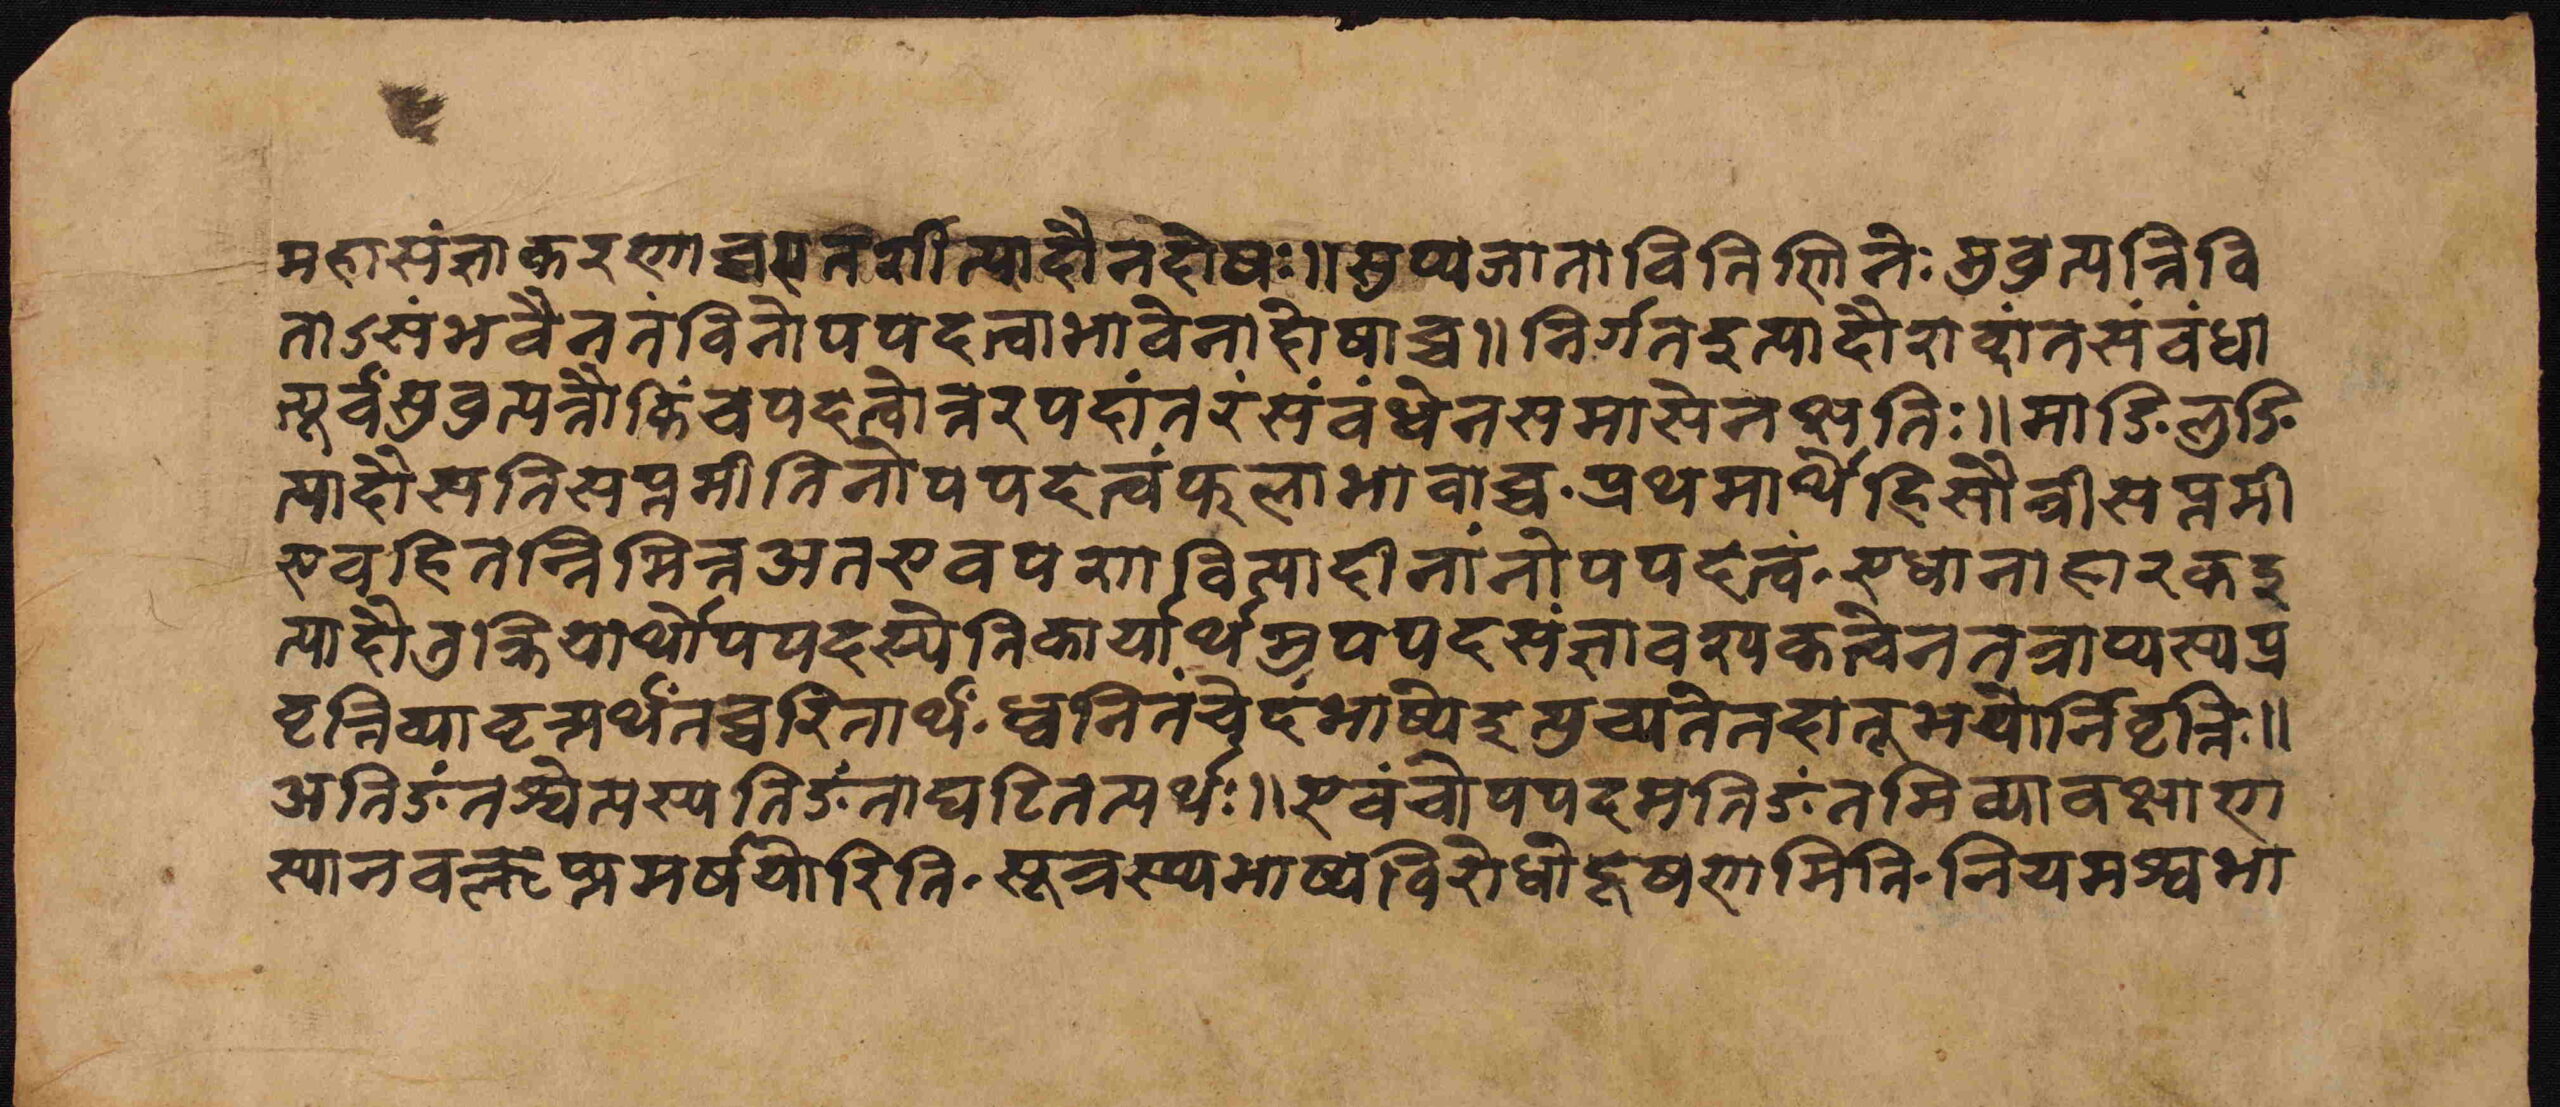 महासंज्ञाकरणाच्चस्पतशीत्यादौनदोषः॥सुप्यजाताविति णिनेः सुबुत्पत्तिवि
ताऽसंभवेनतंविनोपपदत्वाभावेनादोषाच्च॥निर्गतइत्यादौराक्रांतसंबंधा
त्पूर्वंसुबुत्पत्तौकिंचपदत्वोत्तरपदांतरंसंबंधेनसमासेनक्षतिः॥माङिलुङि
त्यादौसतिसप्तमीतिनोपपदत्वंफलाभावाच्च॰प्रथमार्थेहिसौत्रीसप्तमी
एवहितन्निमित्तअतएवपराावित्यादीनांनोपपदत्वं॰एधानाहारकइ
त्यादौतुक्रियार्थोपपदस्येतिकार्यार्थमुपपदसंज्ञावश्यकत्वेनतत्राप्यस्यप्र
वृत्तिव्यावृत्त्यर्थंतच्चरितार्थं॰ध्वनितंचेदंभाष्येइत्युच्यतेतदातूभयोर्निवृत्तिः॥
अतिङंतश्चेत्यस्यतिङंताघटितत्यर्थः॥एवंचोपपदमतिङंतमिव्यावक्षाणा
स्यानवकॢप्त्यमर्षयोरिति॰सूत्रस्थभाष्यविरोधोदूषणमिति॰नियमश्चभा